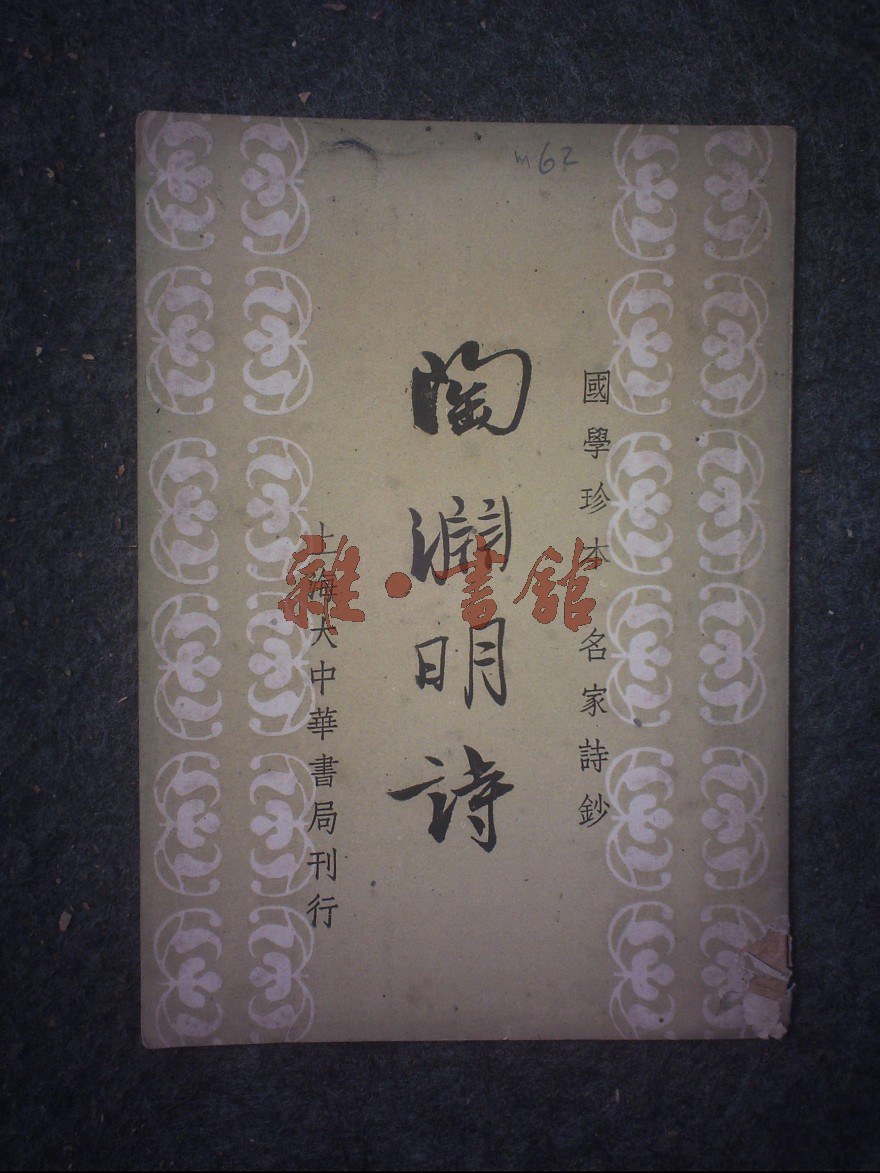 m62
國學珍本 名家詩鈔
陶淵明詩
上海大中華書局刊行
雜·書館